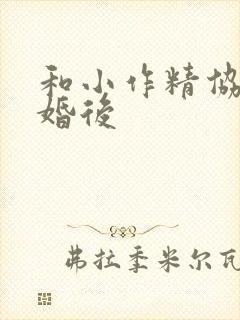 和小作精协
婚後
弗拉季米尔瓦